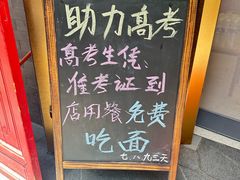 助力高考
高考生凭、
准考证到
店用餐免费
吃面
七、八、九三天